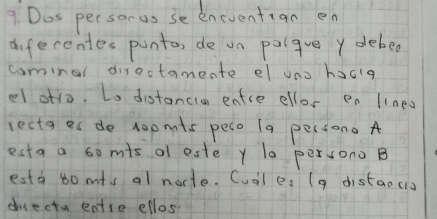 9. Dos personas se encuentran en
diferentes puntos de un parque y deben
caminar directamente el uno hacia
el otro. La distancia entre ellos en linea
recta es de 100 mts pero la persona A
esta a 60 mts al este y la persona B
está 80 mts al norte. Cuál es la distancia
directa entre ellos